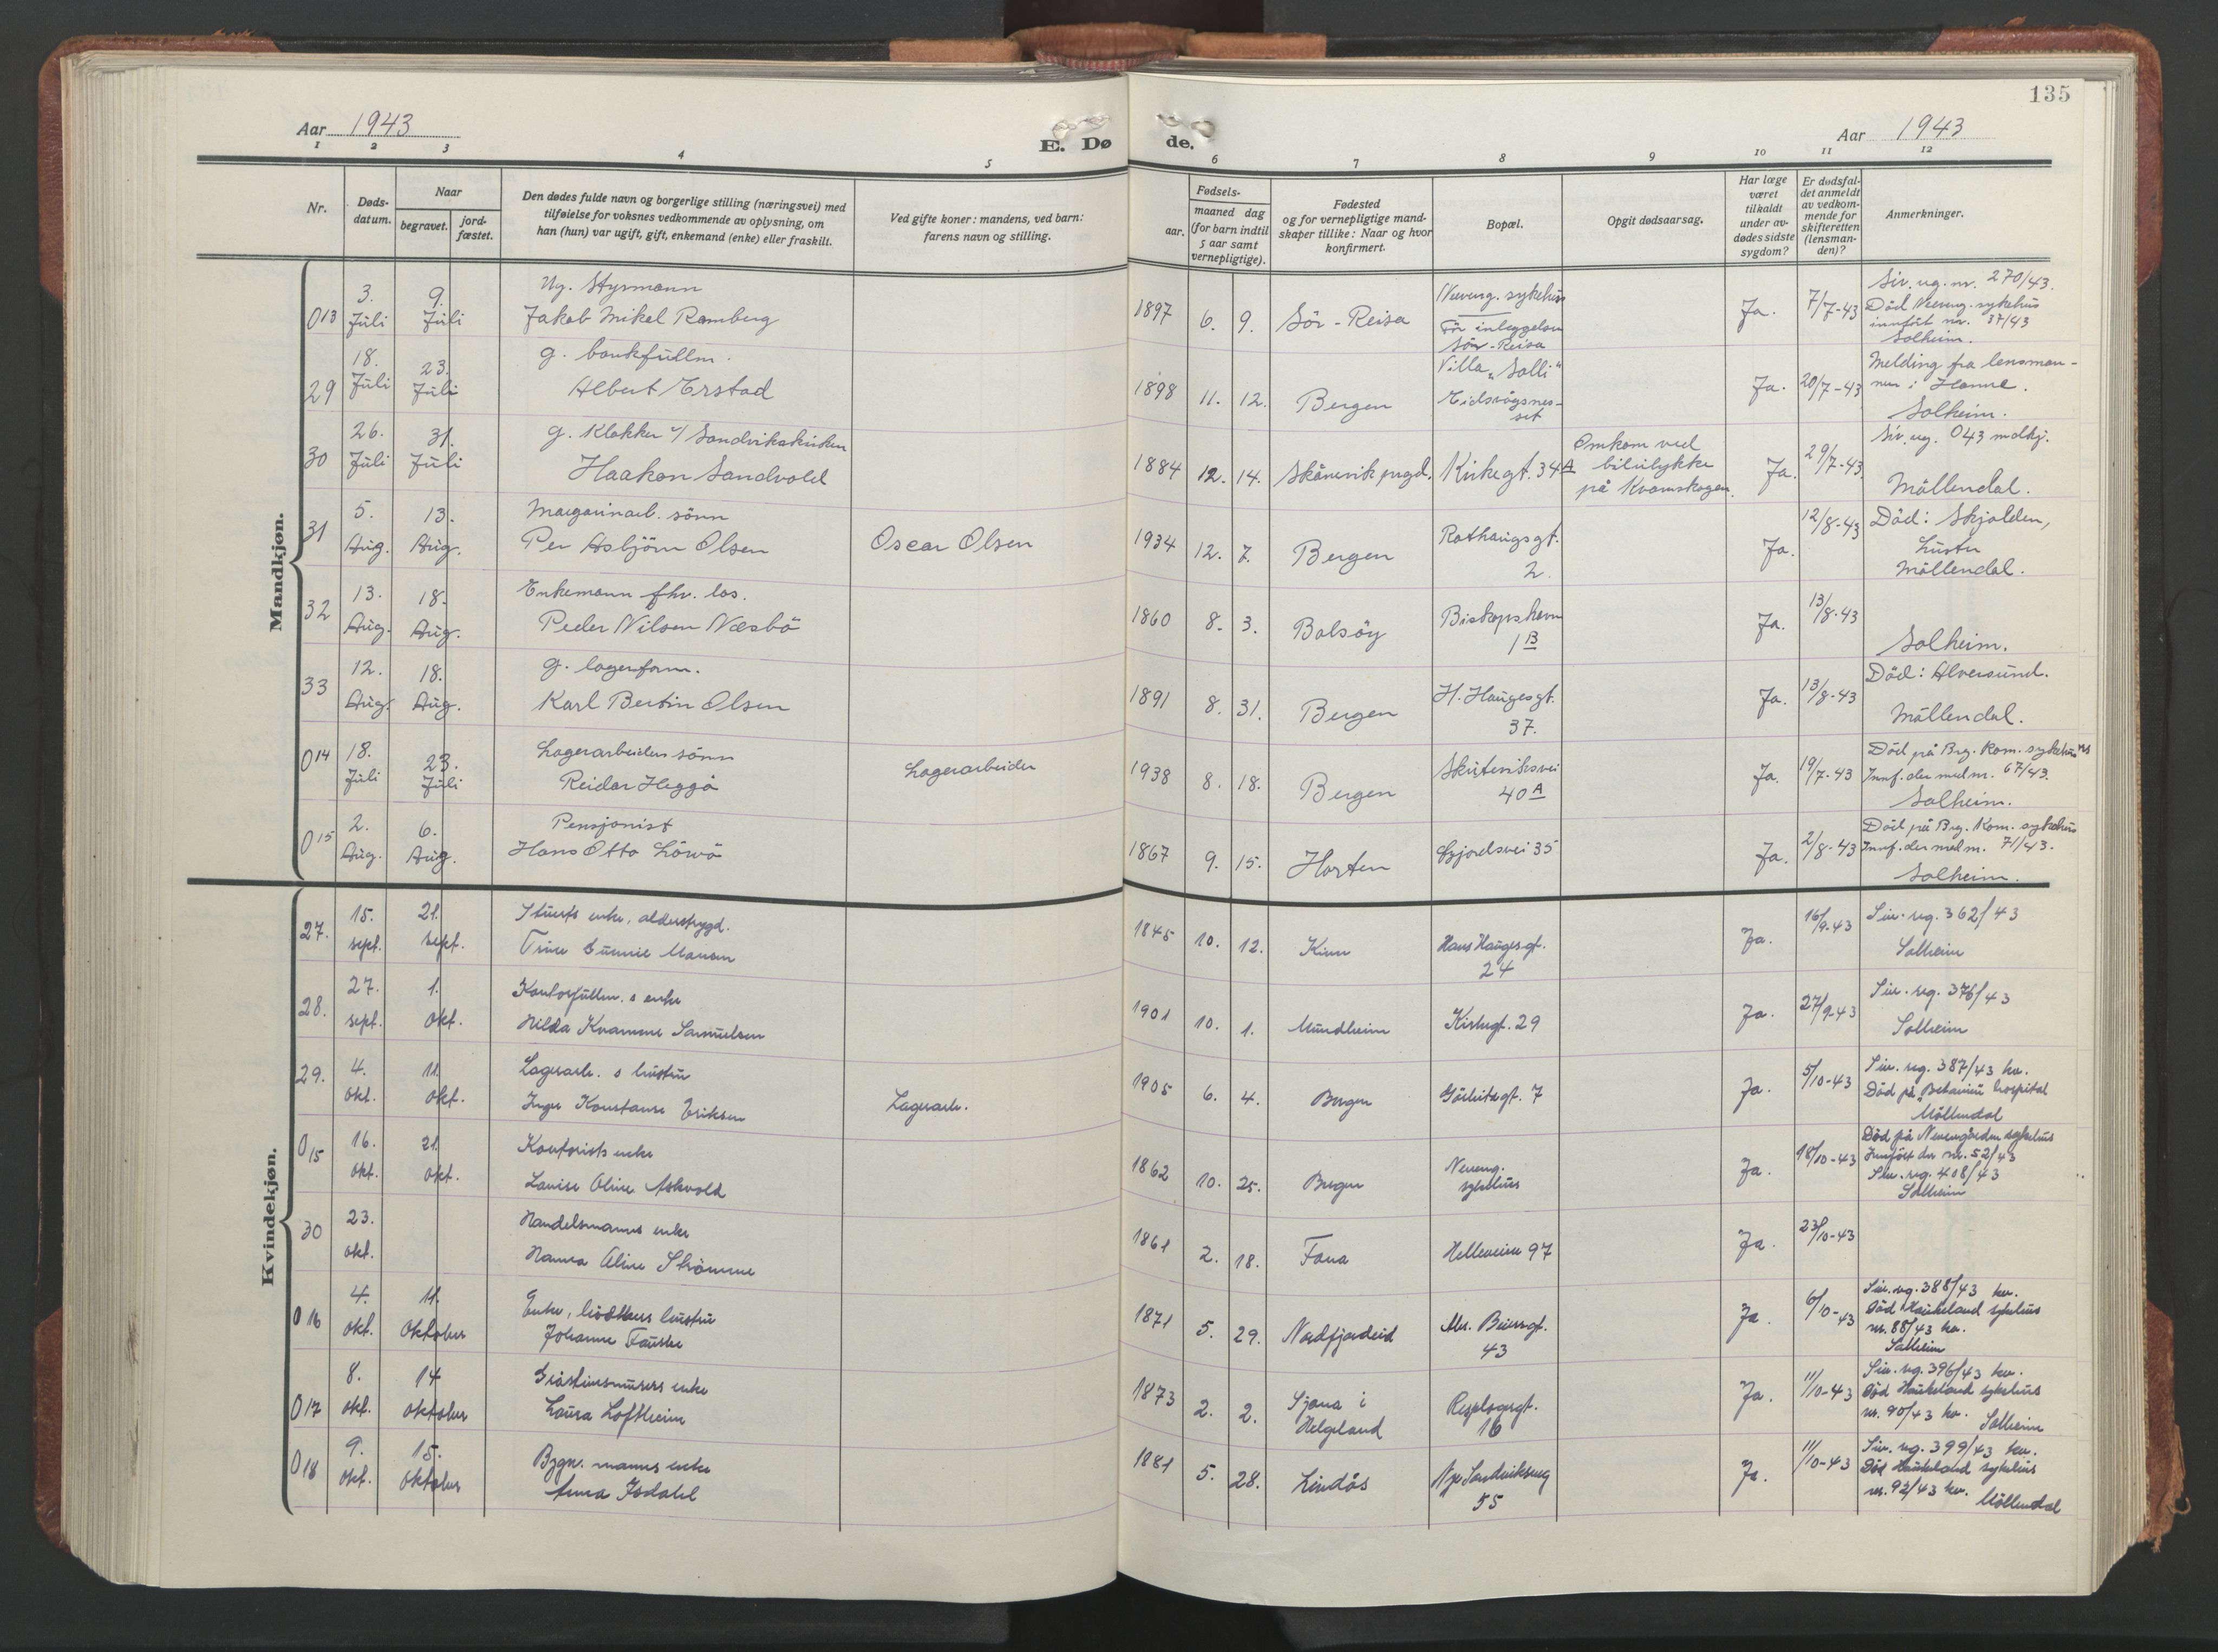 135
Aar 1943
E. Dø
de.
Aar 1943
1 2 3 4 5 6 7 8 9 10 11 12
Nr.
Døds-
datum.
Naar
begravet.
jord-
fæstet.
Den dødes fulde navn og borgerlige stilling (næringsvei) med
tilføielse for voksnes vedkommende av oplysning, om
han (hun) var ugift, gift, enkemand (enke) eller fraskilt.
Ved gifte koner: mandens, ved barn:
farens navn og stilling.
Fødsels-
aar.
maaned dag
(for barn indtil
5 aar samt
vernepligtige).
Fødested
og for vernepligtige mand-
skaper tillike: Naar og hvor
konfirmert.
Bopæl.
Opgit dødsaarsag.
Har læge
været
tilkaldt
under av-
dødes sidste
sygdom?
Er dødsfal-
det anmeldt
av vedkom-
mende for
skifteretten
(lensman-
den)?
Anmerkninger.
Mandkjøn.
013
3.
Juli
9.
Juli
Ug. Styrmann
Jakob Mikal Ramberg
1897 6. 9. Sör-Reisa
Neveng. sykehus
För inleggelsen
Sör-Reisa
Ja. 7/7-43
Siv. reg. nr. 270/43.
Död Neveng. sykehus
innfört nr. 37/43
Solheim.
29
18.
Juli
23.
Juli
g. bankfullm.
Albert Erstad
1898 11. 12. Bergen
Villa "Solli"
Eidsvågsnes-
set
Ja. 20/7-43
Melding fra lensman-
nen i Hamre.
Solheim.
30
26.
Juli
31.
Juli
g. Klokker v/ Sandvikskirken
Haakon Sandvold
1884 12. 14. Skånevik prgd. Kirkegt. 34A
Omkom ved
bilulykke
på Kvamskogen.
Ja. 29/7-43
Siv. reg. 043 mdkj.
Möllendal.
31
5.
Aug.
13.
Aug.
Margarinarb. sönn
Per Asbjörn Olsen
Oscar Olsen
1934 12. 7. Bergen
Rothaugsgt.
2.
Ja. 12/8-43
Död: Skjolden,
Luster
Möllendal.
32
13.
Aug.
18.
Aug.
Enkemann fhv. los.
Peder Nilsen Næsbö
1860 8. 3. Bolsöy
Biskopshavn
1B
Ja. 13/8-43
Solheim.
33
12.
Aug.
18.
Aug.
g. lagerform.
Karl Bertin Olsen
1891 8. 31. Bergen
H. Haugesgt.
37.
Ja. 13/8-43
Död: Alversund.
Möllendal.
014
18.
Juli
23.
Juli
Lagerarbeiders sönn
Reidar Heggö
Lagerarbeider
1938 8. 18. Bergen
Skuteviksvei
40A
Ja. 19/7-43
Död på Brg. Kom. sykehus
Innf. der med nr. 67/43.
Solheim.
015
2.
Aug.
6.
Aug.
Pensjonist
Hans Otto Lövö
1867 9. 15. Horten
35
Ja. 2/8-43
Död på Brg. Kom. sykehus
Innf. der med nr. 71/43.
Solheim.
Kvindekjøn.
27.
15.
sept.
21.
sept.
Stuerts enke, alderstrygd.
Trine Monsen
1845 10. 12. Kinn
Hans Haugesgt.
24
Ja. 16/9-43
Siv. reg. 362/43
Solheim
28.
27.
sept.
1.
okt.
Kontorfullm. s enke
Hilda Kvamme Samuelsen
1901 10. 1. Mundheim Kirkegt. 29
Ja. 27/9-43
Siv. reg. 376/43
Solheim
29.
4.
okt.
11.
okt.
Lagerarb. s hustru
Inga Konstanse Eriksen
Lagerarb.
1905 6. 4. Bergen Görbitzgt. 7
Ja. 5/10-43
Siv. reg. 387/43 kv.
Död på "Betanien" hospital
Möllendal
015
16.
okt.
21.
okt.
Kontorists enke
Lovise Oline Askvold
1862 10. 25. Bergen
Neveng.
sykehus
Ja. 18/10-43
Död på Nevengården sykehus
Innfört der nr. 52/43
Siv. reg. 408/43
Solheim
30
23.
okt.
Handelsmanns enke
Hanna Oline Strömme
1861 2. 18. Fana Helleveien 97
Ja. 23/10-43
016
4.
okt.
11.
Oktober
Enke, hustru
Johanne Fauske
1871 5. 29. Nordfjordeid
Abs. Beiersgt.
43
Ja. 6/10-43
Siv. reg. 388/43 kv.
Död Haukeland sykehus
nr. 88/43 kv.
Solheim
017
8.
okt.
14
oktober
Gråsteinsmurers enke
Laura Loftheim
1873 2. 2.
Sjona i
Helgeland
Repslagergt.
16
Ja. 11/10-43
Siv. reg. 396/43 kv.
Död Haukeland sykehus
nr. 90/43 kv. Solheim
018
9.
okt.
15.
Oktober
Bygn. manns enke
Anna Isdahl
1881 5. 28. Lindås
Nye Sandviksveg
55
Ja. 11/10-43
Siv. reg. 399/43 kv.
Död Haukeland sykehus
nr. 92/43 kv. Möllendal